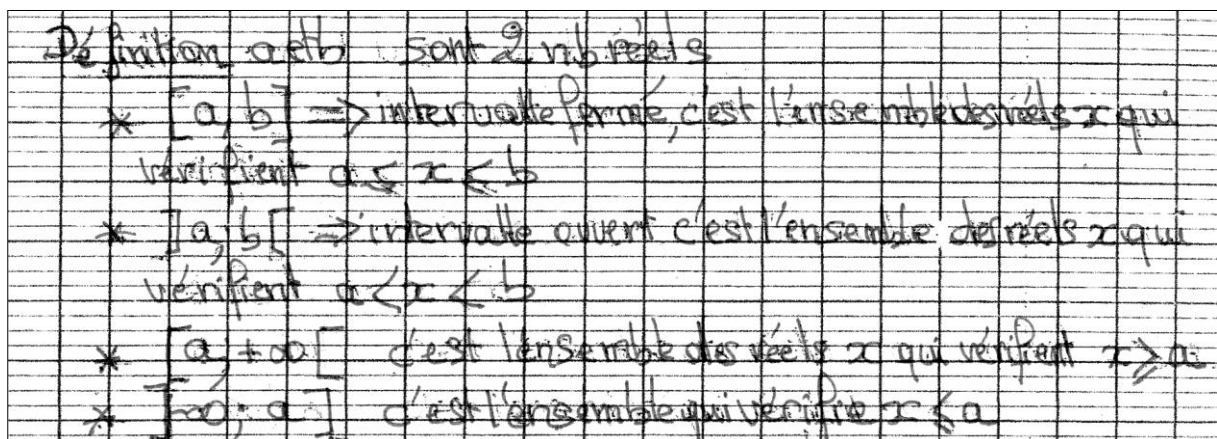 Définition a et b sont 2 nb réels
* [a; b] => intervalle fermé, c'est l'ensemble des réels x qui
vérifient a ≤ x ≤ b
* ]a; b[ => intervalle ouvert c'est l'ensemble des réels x qui
vérifient a < x < b
* [a; +∞[ c'est l'ensemble des réels x qui vérifient x ⩾ a
* ]-∞; a] c'est l'ensemble qui vérifie x ⩽ a